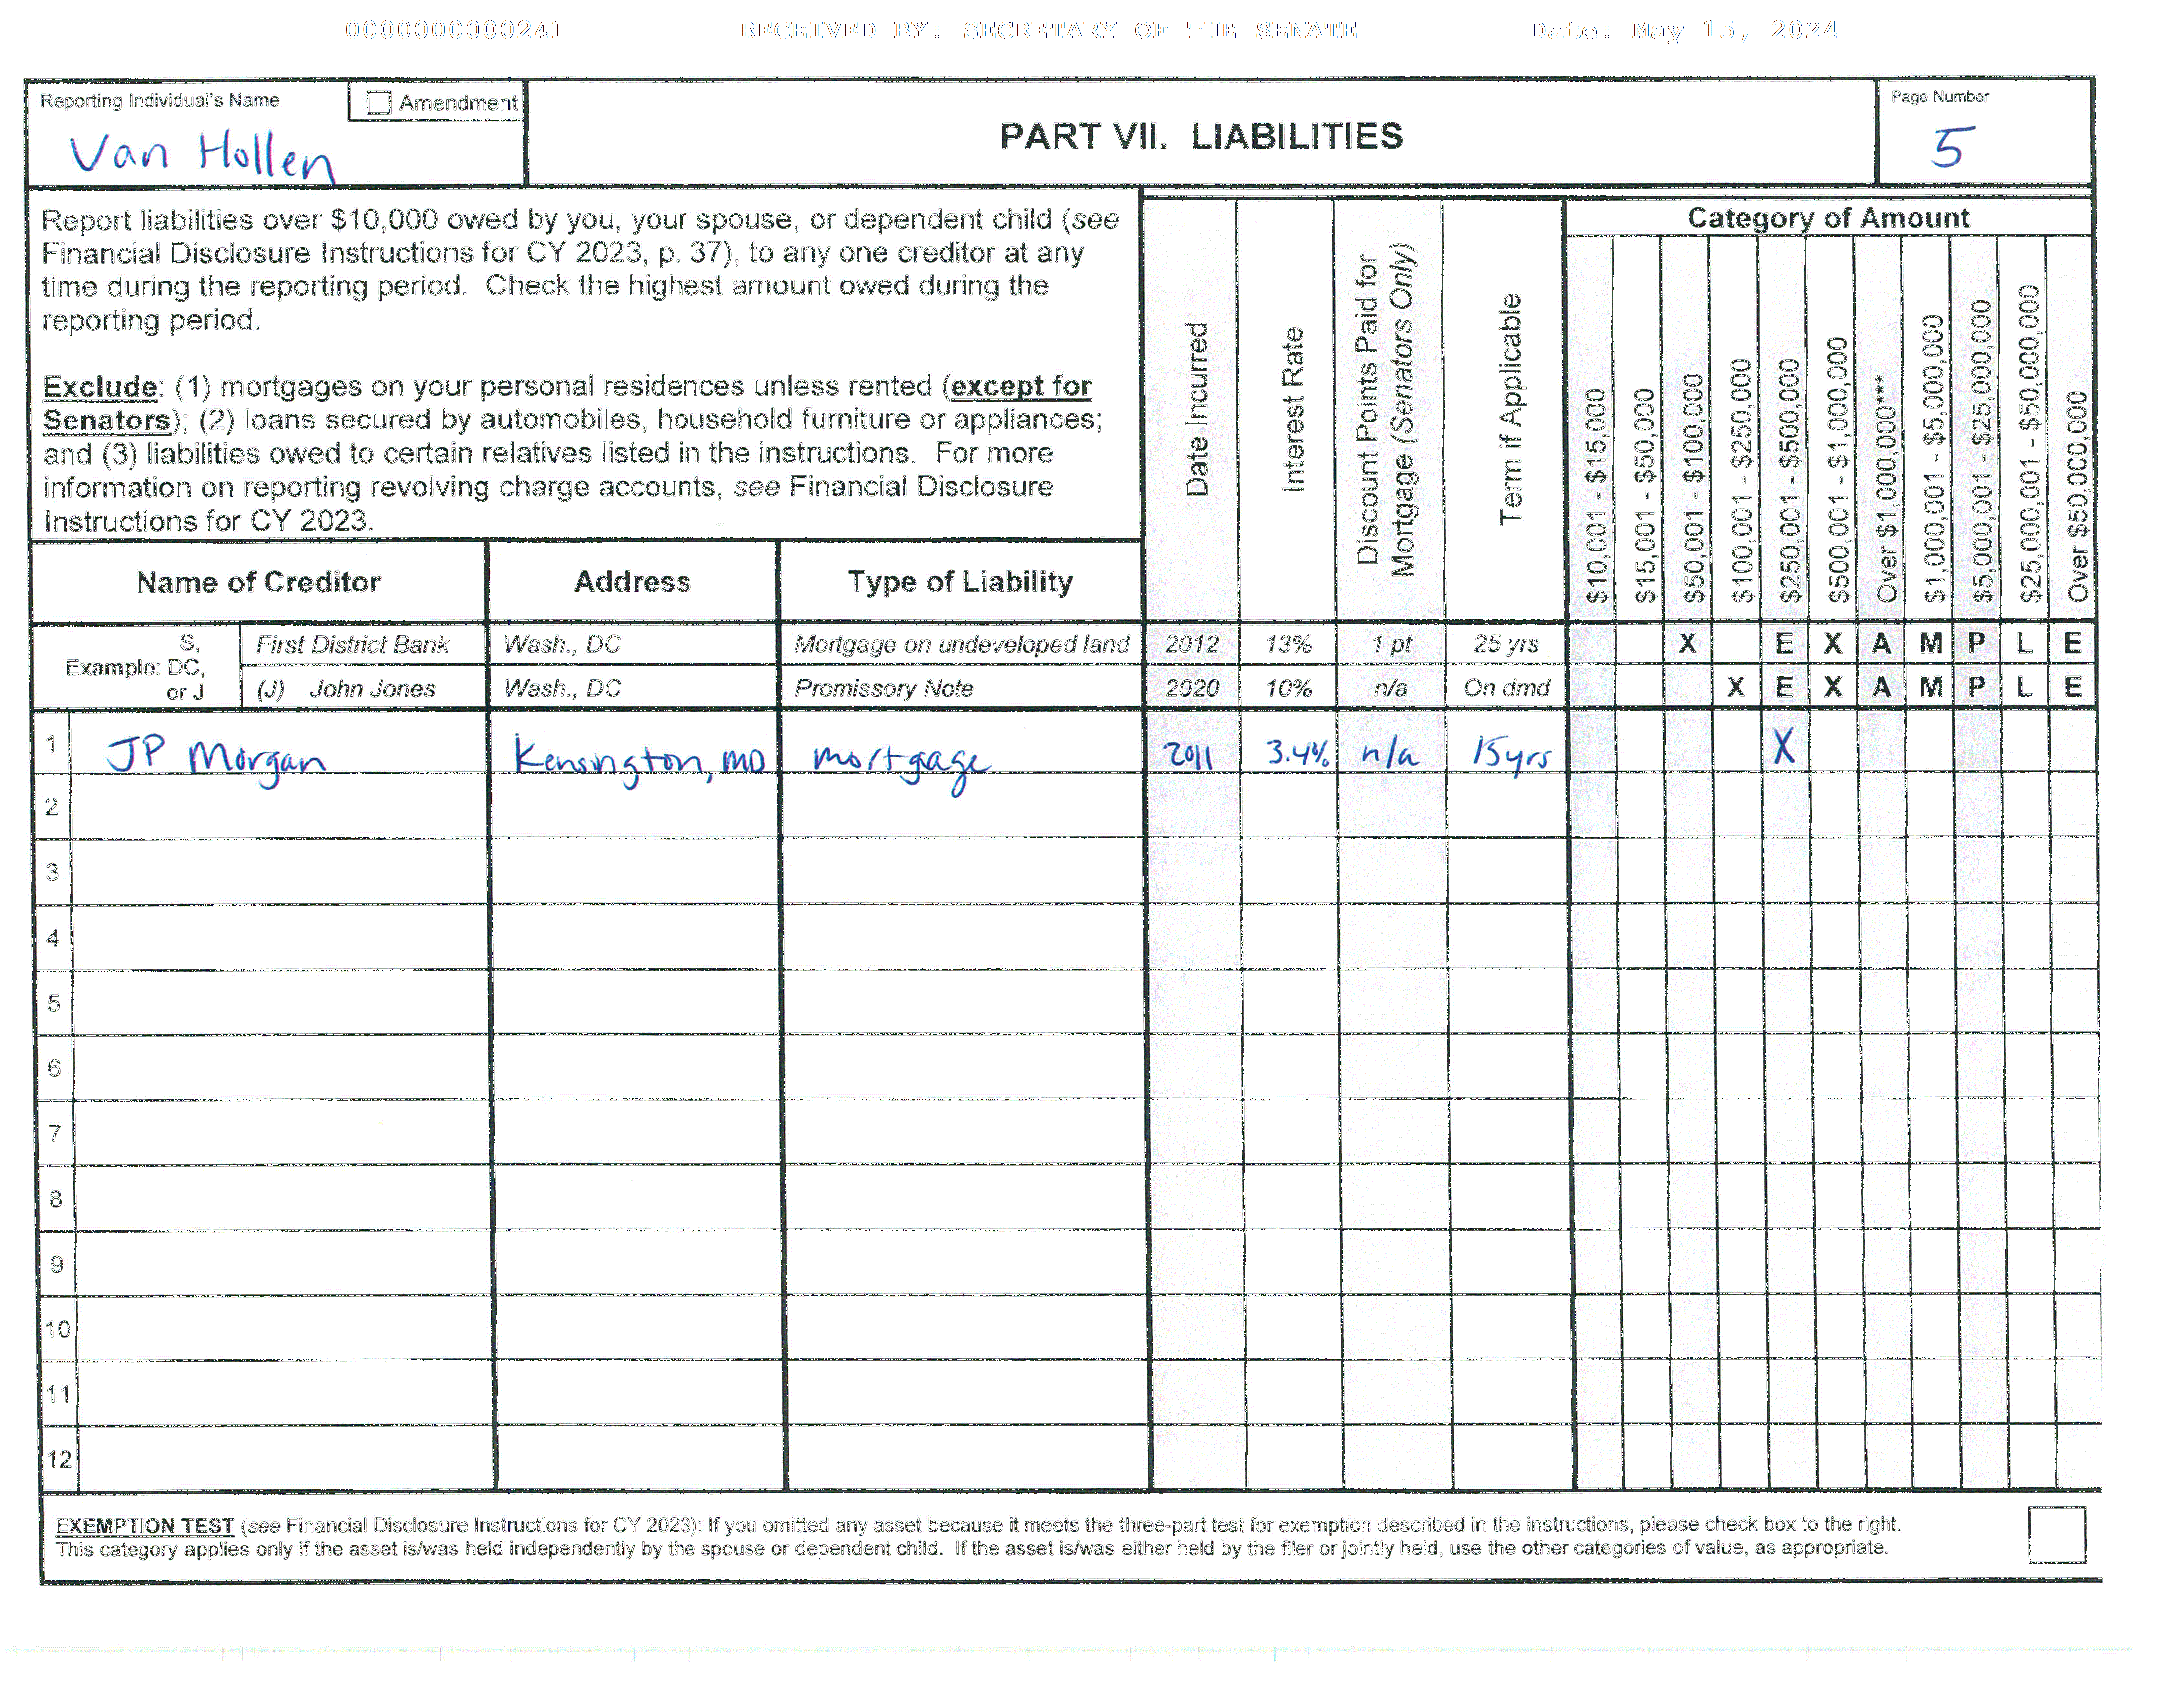 0000000000241 RECEIVED BY: SECRETARY OF THE SENATE Date: May 15, 2024
Reporting Individual's Name
Amendment
Van Hollen
PART VII. LIABILITIES
Page Number
5
Report liabilities over $10,000 owed by you, your spouse, or dependent child (see
Financial Disclosure Instructions for CY 2023, p. 37), to any one creditor at any
time during the reporting period. Check the highest amount owed during the
reporting period.
Exclude: (1) mortgages on your personal residences unless rented (except for
Senators); (2) loans secured by automobiles, household furniture or appliances;
and (3) liabilities owed to certain relatives listed in the instructions. For more
information on reporting revolving charge accounts, see Financial Disclosure
Instructions for CY 2023.
Name of Creditor
Address
Type of Liability
Date Incurred
Interest Rate
Discount Points Paid for
Mortgage (Senators Only)
Term if Applicable
Category of Amount
$10,001 - $15,000
$15,001 - $50,000
$50,001 - $100,000
$100,001 - $250,000
$250,001 - $500,000
$500,001 - $1,000,000
Over $1,000,000***
$1,000,001 - $5,000,000
$5,000,001 - $25,000,000
$25,000,001 - $50,000,000
Over $50,000,000
Example:
S,
DC,
or J
First District Bank Wash., DC Mortgage on undeveloped land 2012 13% 1 pt 25 yrs X E X A M P L E
(J) John Jones Wash., DC Promissory Note 2020 10% n/a On dmd X E X A M P L E
1 JP Morgan Kensington, MD mortgage 2011 3.4% n/a 15yrs X
2
3
4
5
6
7
8
9
10
11
12
EXEMPTION TEST (see Financial Disclosure Instructions for CY 2023): If you omitted any asset because it meets the three-part test for exemption described in the instructions, please check box to the right.
This category applies only if the asset is/was held independently by the spouse or dependent child. If the asset is/was either held by the filer or jointly held, use the other categories of value, as appropriate.